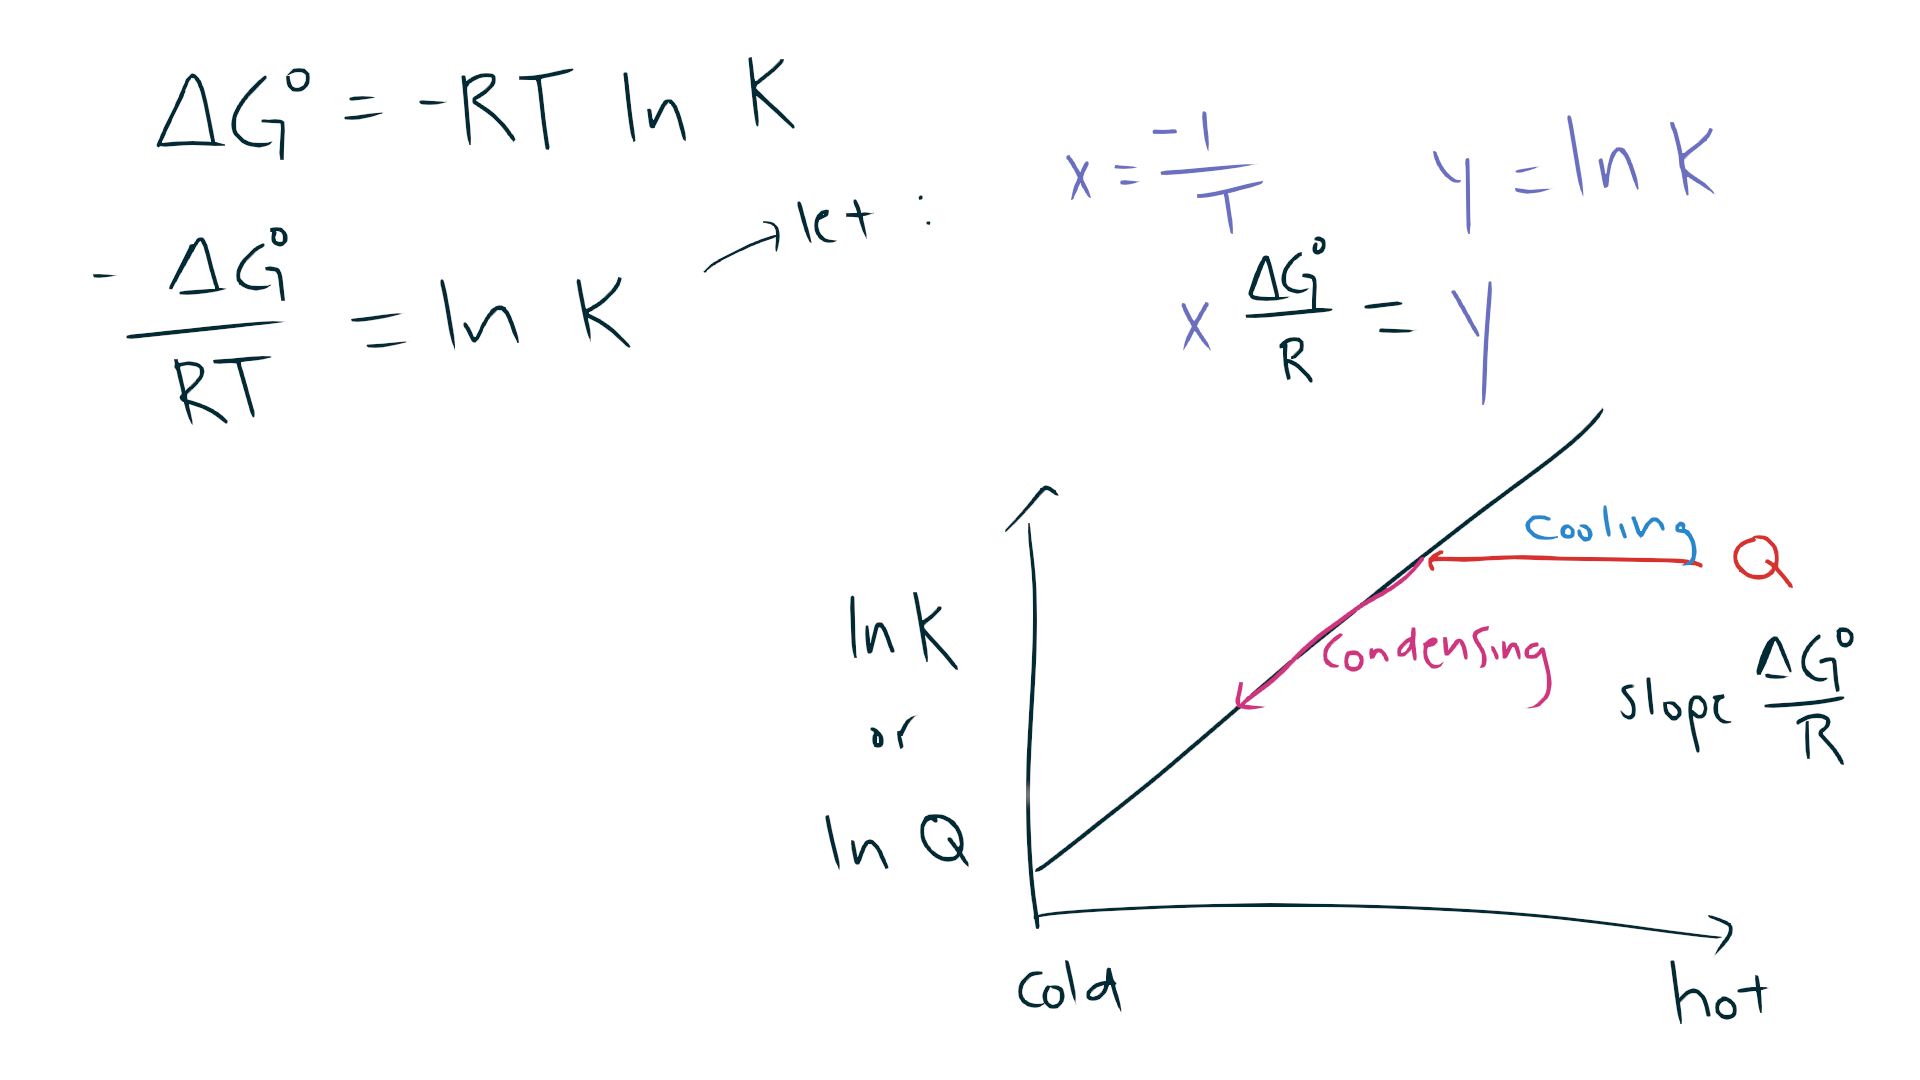 ΔG° = -RT ln K
- ΔG° / RT = ln K
let :
x = -1 / T
y = ln K
x ΔG° / R = y
cooling
Q
condensing
slope ΔG° / R
ln K
or
ln Q
cold
hot